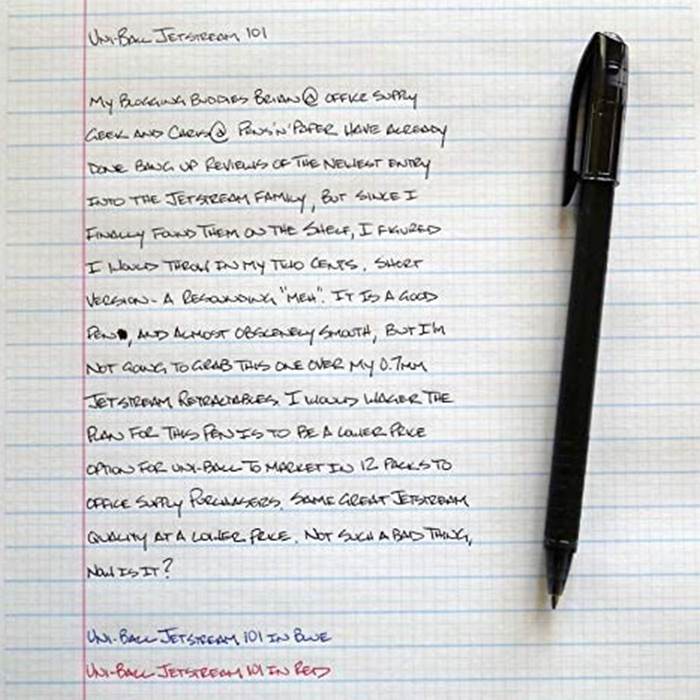 UNI-BALL JETSTREAM 101
MY BLOGGING BUDDIES BRIAN @ OFFICE SUPPLY
GEEK AND CARIS@ PENS'N'PAPER HAVE ALREADY
DONE BANG UP REVIEWS OF THE NEWEST ENTRY
INTO THE JETSTREAM FAMILY, BUT SINCE I
FINALLY FOUND THEM ON THE SHELF, I FIGURED
I WOULD THROW IN MY TWO CENTS. SHORT
VERSION - A RESOUNDING "MEH". IT IS A GOOD
PEN, AND ALMOST OBSCENELY SMOOTH, BUT I'M
NOT GOING TO GRAB THIS ONE OVER MY 0.7MM
JETSTREAM RETRACTABLES. I WOULD WAGER THE
PLAN FOR THIS PEN IS TO BE A LOWER PRICE
OPTION FOR UNI-BALL TO MARKET IN 12 PACKS TO
OFFICE SUPPLY PURCHASERS. SAME GREAT JETSTREAM
QUALITY AT A LOWER PRICE. NOT SUCH A BAD THING,
NOW IS IT?
UNI-BALL JETSTREAM 101 IN BLUE
UNI-BALL JETSTREAM 101 IN RED